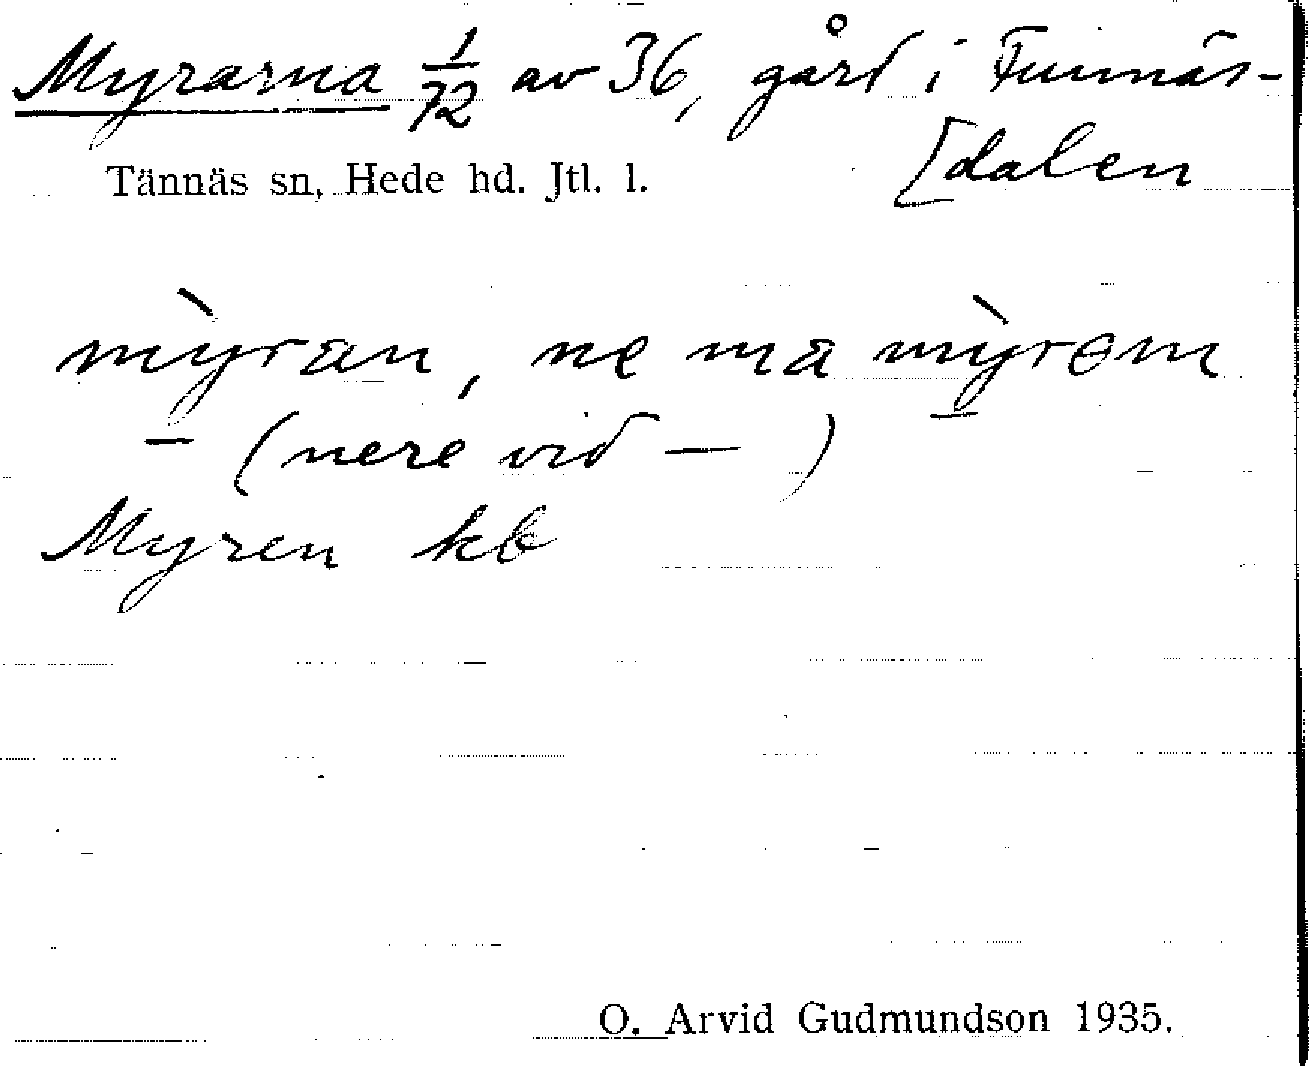 Myrarna 1/72 av 36, gård i Funnäs-
[dalen
Tännäs sn, Hede hd. Jtl. l.
mỳran, ne ma mỳrəm
(nere vid — )
Myren kb
O. Arvid Gudmundson 1935.